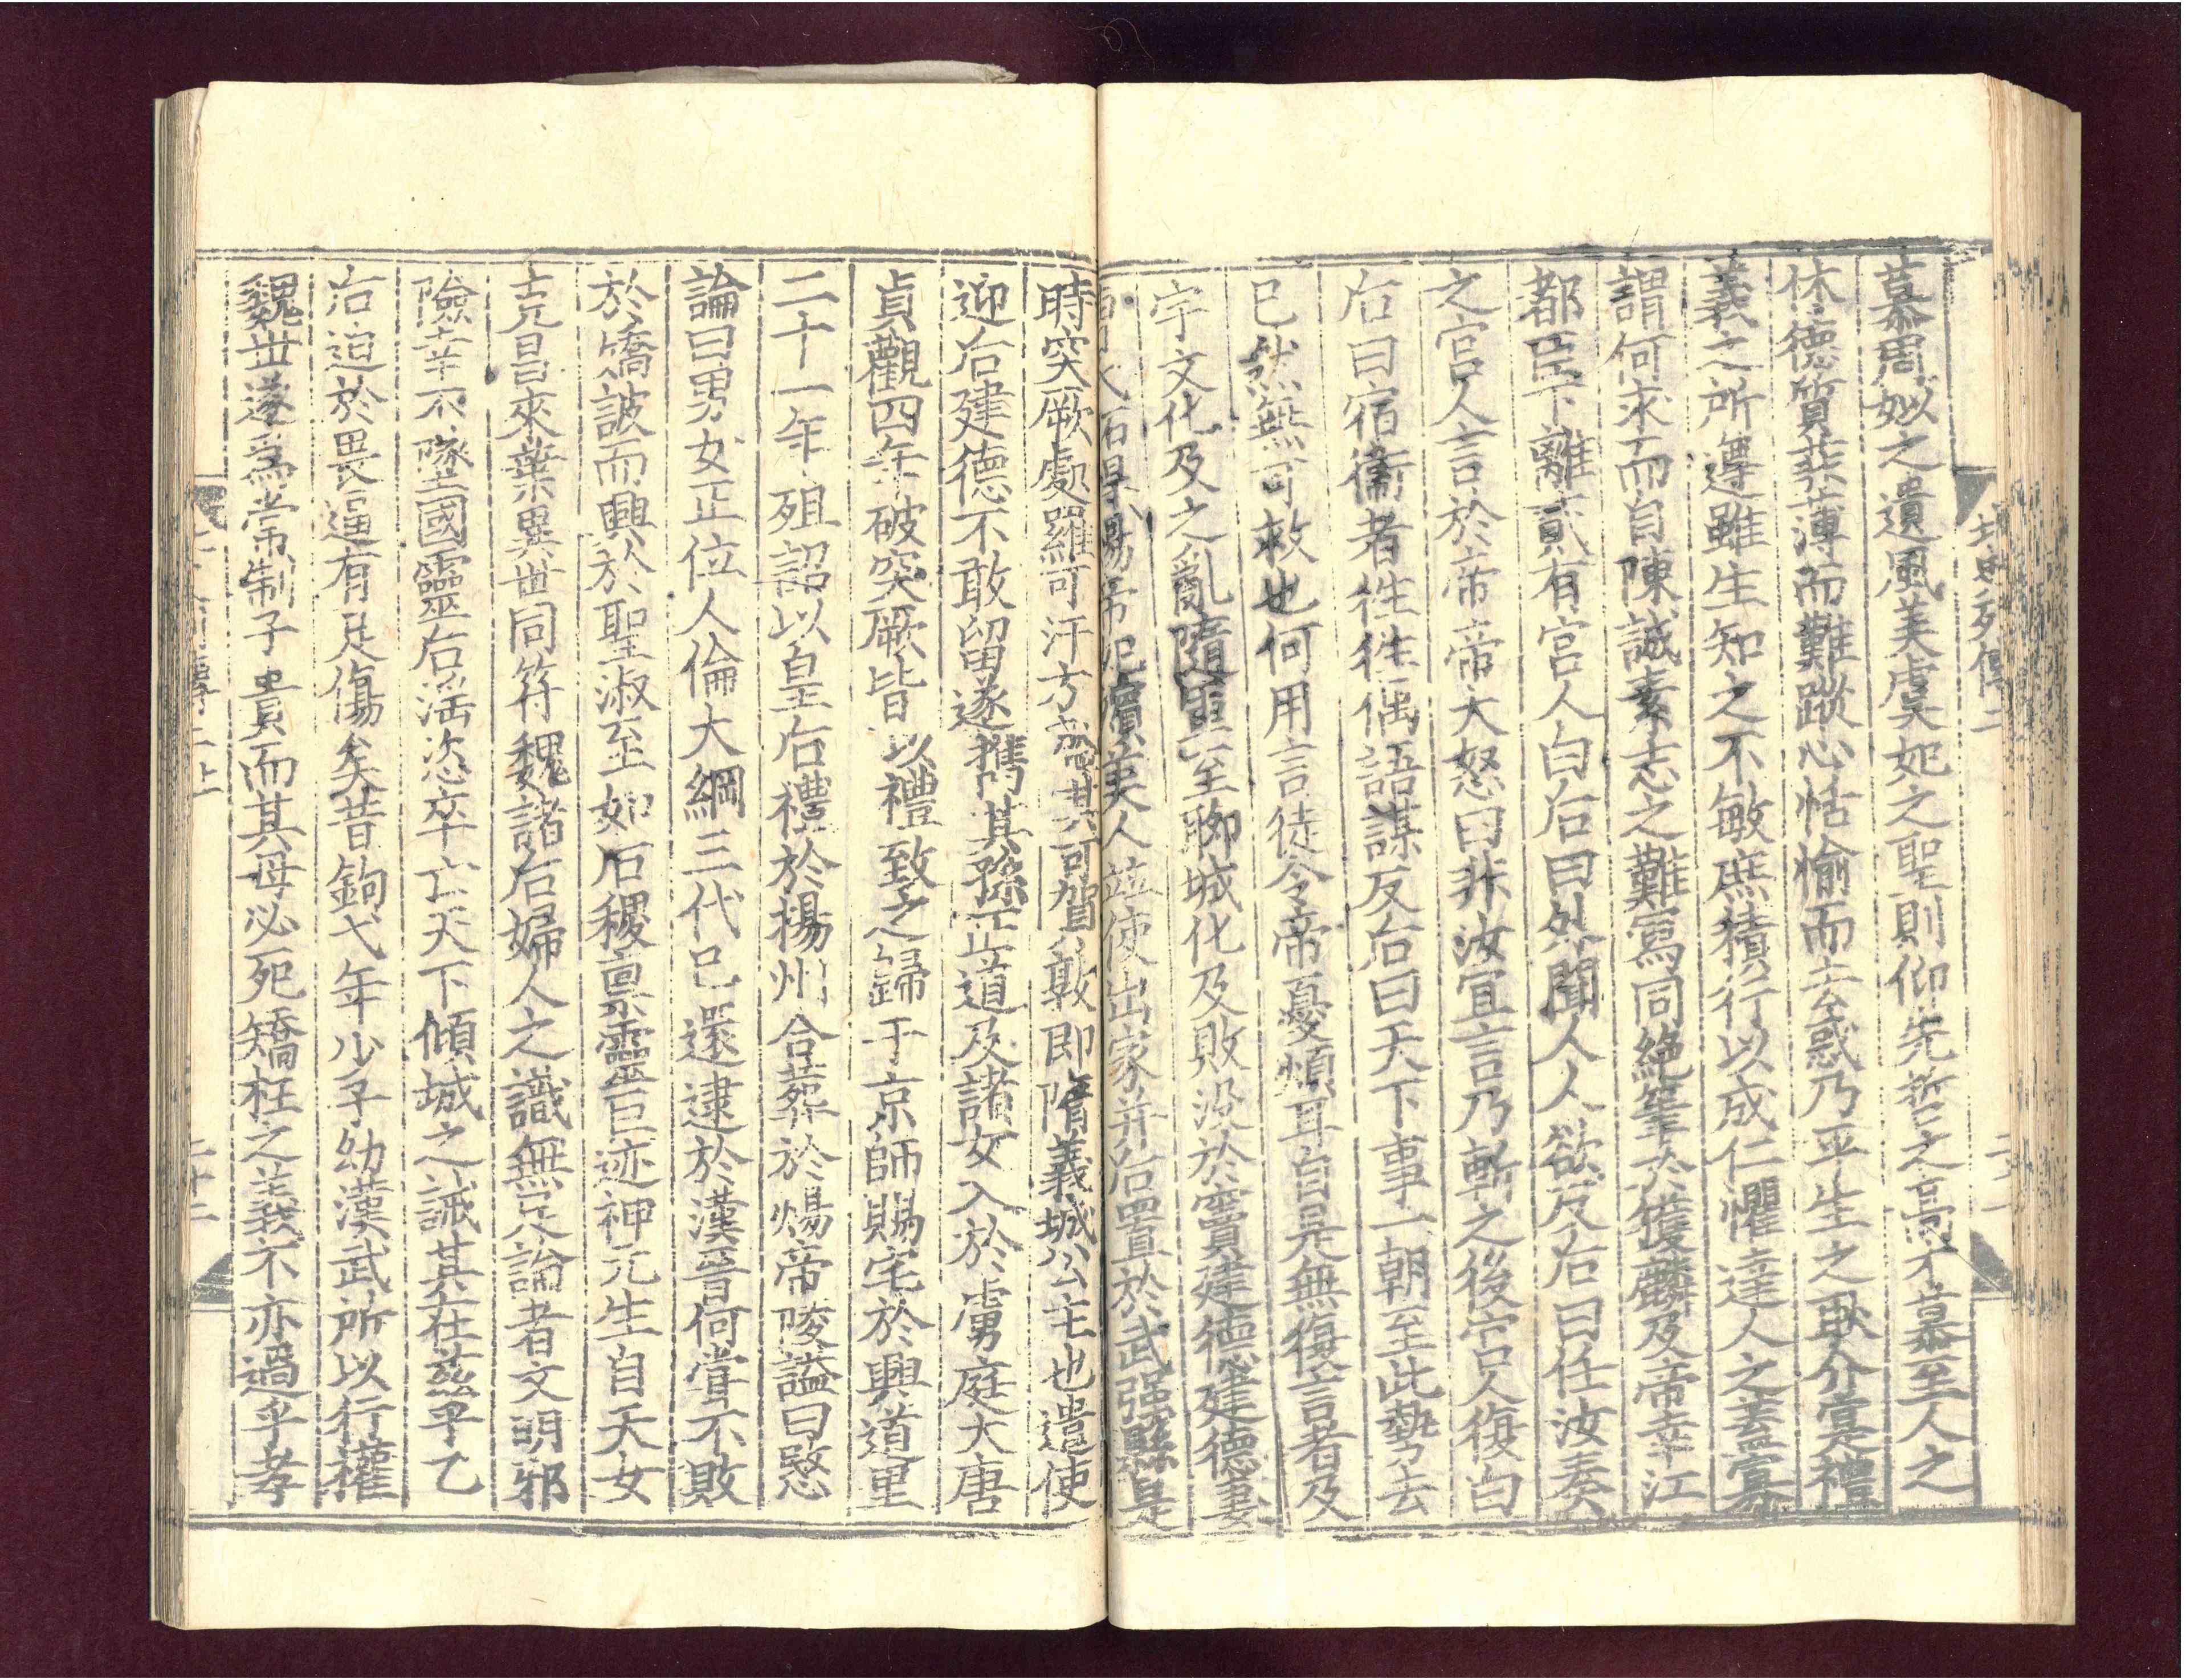 北史列傳二
慕周姒之遺風美虞妃之聖則仰先哲之高才慕至人之
休德質菲薄而難蹤心恬愉而去惑乃平生之耿介寔禮
義之所遵雖生知之不敏庶積行以成仁懼達人之蓋寡
謂何求而自陳誠素志之難寫同絶筆於獲麟及帝幸江
都臣下離貳有宮人白后曰外聞人人欲反后曰任汝奏
之宮人言於帝帝大怒曰非汝宜言乃斬之後宮人復白
后曰宿衞者徃徃偶語謀反后曰天下事一朝至此勢去
已然無可救也何用言徒令帝憂煩耳自是無復言者及
宇文化及之亂隨軍至聊城化及敗没於竇建德建德妻
煬帝妃嬪美人並使出家并后置於武强縣是
時突厥處羅可汗方盛其可賀敦即隋義城公主也遣使
迎后建德不敢留遂攜其孫正道及諸女入於虜庭大唐
貞觀四年破突厥皆以禮致之歸于京師賜宅於興道里
二十一年殂詔以皇后禮於揚州合葬於煬帝陵謚曰愍
論曰男女正位人倫大綱三代已還逮於漢晉何嘗不敗
於嬌詖而興於聖淑至如后稷稟靈巨迹神元生自天女
克昌來葉異世同符魏諸后婦人之識無足論者文明邪
險幸不墜國靈后淫恣卒亡天下傾城之誡其在茲乎乙
后迫於畏逼有足傷矣昔鉤弋年少子幼漢武所以行權
魏世遂爲常制子貴而其母必死矯枉之義不亦過乎孝
傳二上
二十二